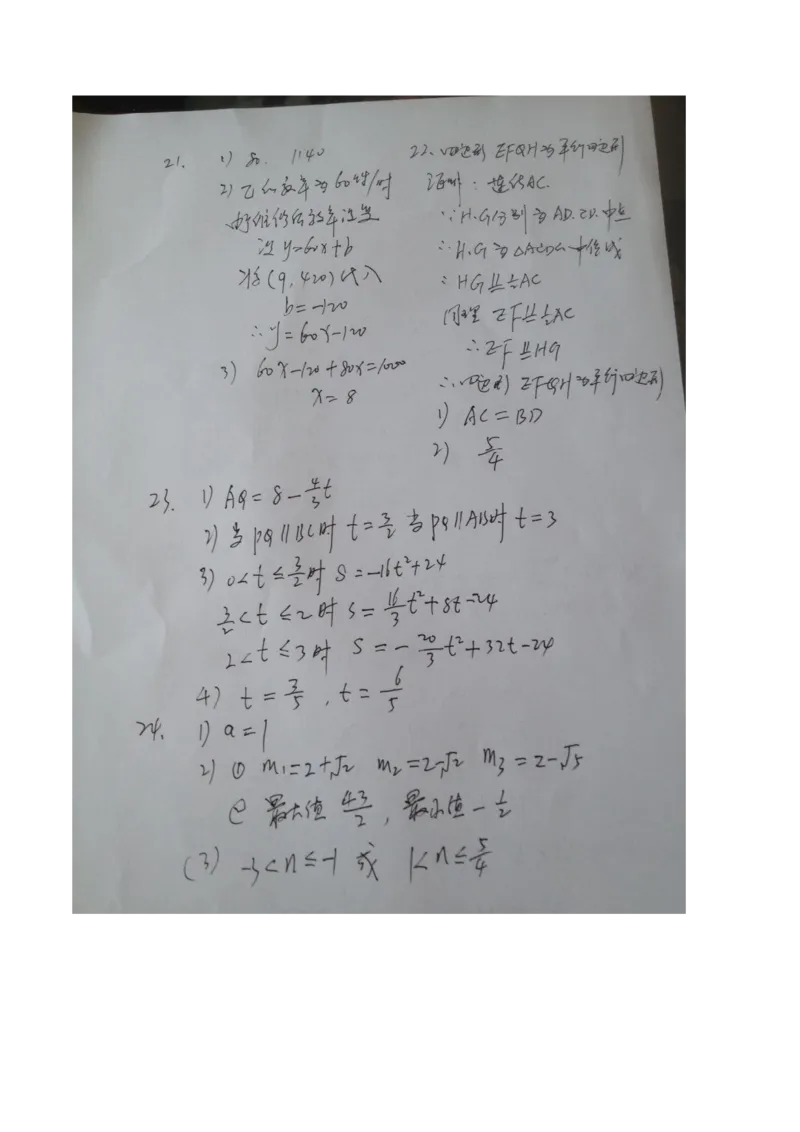 21. 1) 80. 1140
2) 乙的效率为60件/时
由于维修后效率没变
设 y=60x+b
将(9, 420)代入
b=-120
∴y=60x-120
3) 60x-120+80x=1000
x=8
22. 四边形 EFGH为平行四边形
证明: 连结AC.
∵H.G分别为AD.CD.中点
∴H.G为△ACDG中位线
∴HG∥=½AC
同理 EF∥=½AC
∴EF∥=HG
∴四边形 EFGH为平行四边形
1) AC=BD
2) 5/4
23. 1) AQ=8-4/3t
2) 当PQ∥BC时 t=3/2 当PQ∥AB时 t=3
3) 0<t≤3/2时 S=-16t²+24
3/2<t≤2时 S=16/3t²+8t-24
2<t≤3时 S=-20/3t²+32t-24
4) t=3/5, t=6/5
24. 1) a=1
2) ① m₁=2+√2 m₂=2-√2 m₃=2-√5
② 最大值 43/2, 最小值-1/2
(3) -3<n≤-1 或 1<n≤5/4